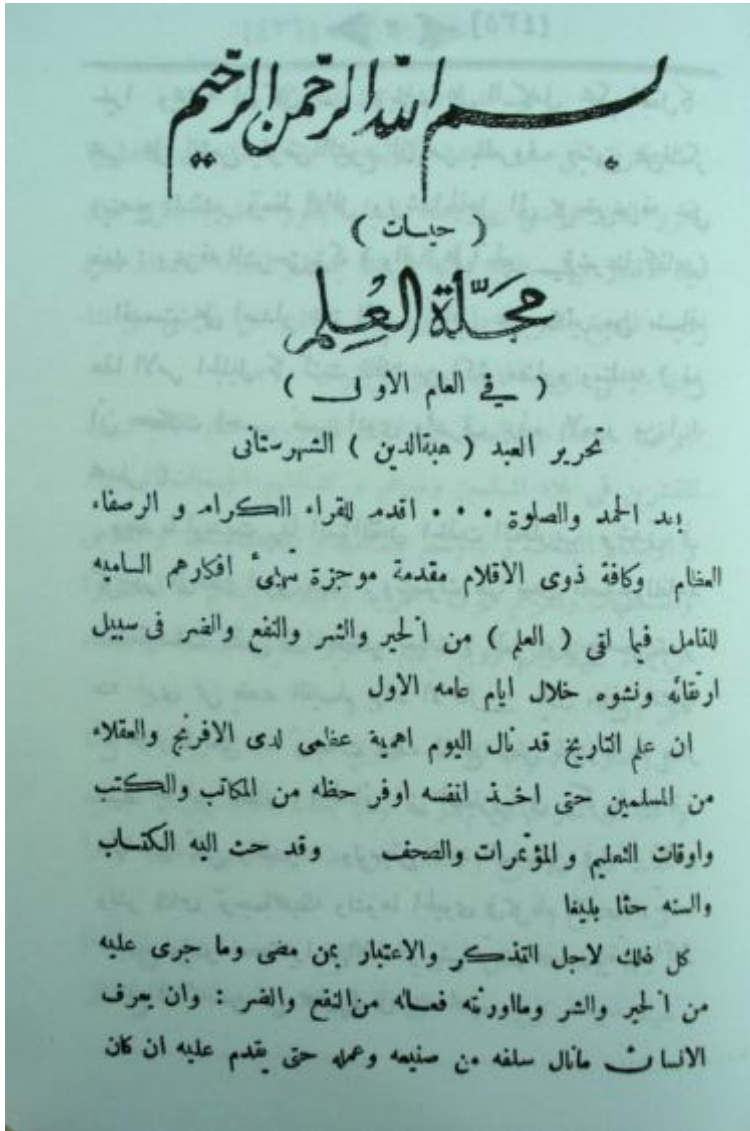 بسم الله الرحمن الرحيم
( حيات )
مجلّة العُلِم
( في العام الاولى )
تحرير العبد ( هبةالدين ) الشهرستانى
بعد الحمد والصلوة ٠ ٠ ٠ اقدم للقراء الكرام و الرصفاء
العظام وكافة ذوى الاقلام مقدمة موجزة تهيئ افكارهم الساميه
للتامل فيما لقى ( العلم ) من الخير والشر والنفع والضر فى سبيل
ارتقائه ونشوه خلال ايام عامه الاول
ان علم التاريخ قد نال اليوم اهمية عظمى لدى الافرنج والعقلاء
من المسلمين حتى اخذ لنفسه اوفر حظه من المكاتب والكتب
واوقات التعليم والمؤتمرات والصحف وقد حث اليه الكتاب
والسنه حثا بليغا
كل ذلك لاجل التذكر والاعتبار بمن مضى وما جرى عليه
من الخير والشر ومااورثه فعاله من النفع والضر : وان يعرف
الانسان مانال سلفه من صنيعه وعمله حتى يقدم عليه ان كان